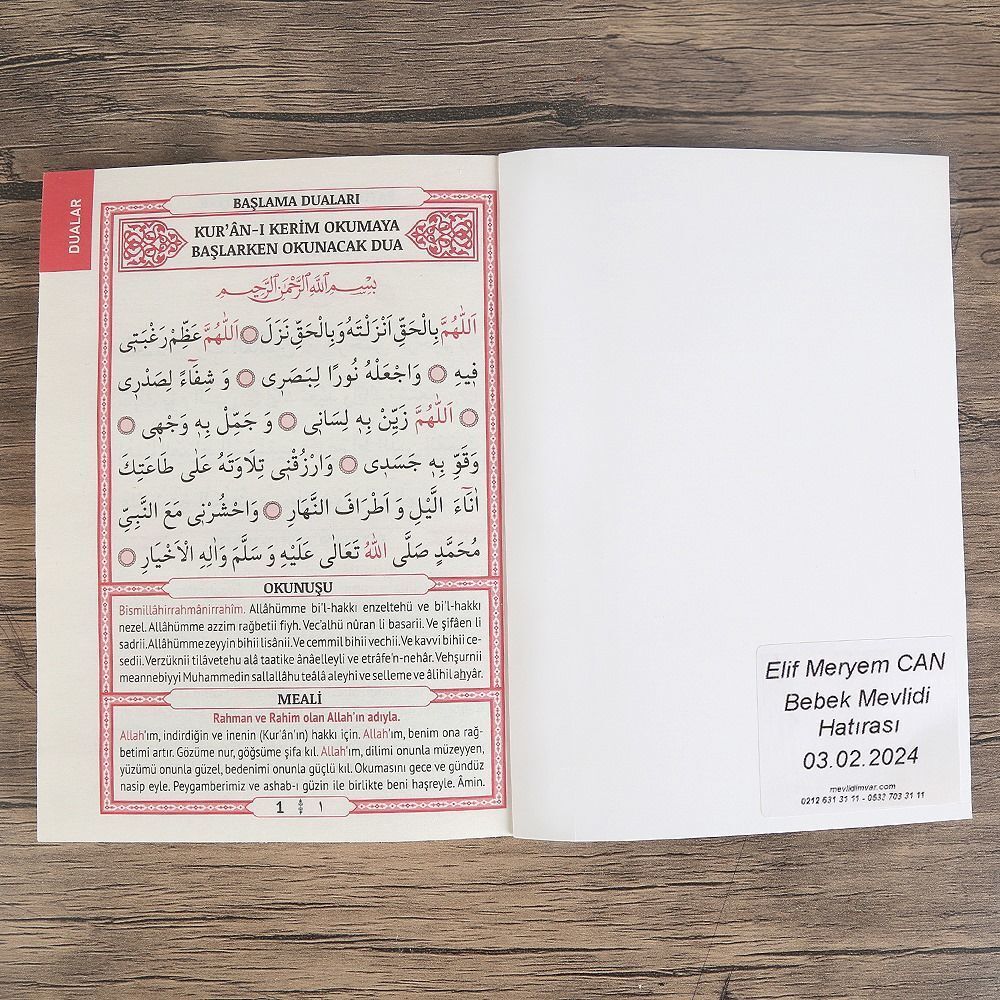 DUALAR
BAŞLAMA DUALARI
KUR'ÂN-I KERİM OKUMAYA
BAŞLARKEN OKUNACAK DUA
بِسْمِ اللهِ الرَّحْمٰنِ الرَّحِيمِ
اَللّٰهُمَّ بِالْحَقِّ اَنْزَلْتَهُ وَبِالْحَقِّ نَزَلَ ۝ اَللّٰهُمَّ عَظِّمْ رَغْبَتٖى
فٖيهِ ۝ وَاجْعَلْهُ نُورًا لِبَصَرٖى ۝ وَ شِفَٓاءً لِصَدْرٖى
۝ اَللّٰهُمَّ زَيِّنْ بِهٖ لِسَانٖى ۝ وَ جَمِّلْ بِهٖ وَجْهٖى ۝
وَقَوِّ بِهٖ جَسَدٖى ۝ وَارْزُقْنٖى تِلَاوَتَهُ عَلٰى طَاعَتِكَ
اٰنَٓاءَ الَّيْلِ وَ اَطْرَافَ النَّهَارِ ۝ وَاحْشُرْنٖى مَعَ النَّبِىِّ
مُحَمَّدٍ صَلَّى اللهُ تَعَالٰى عَلَيْهِ وَ سَلَّمَ وَاٰلِهِ الْاَخْيَارِ ۝
OKUNUŞU
Bismillâhirrahmânirrahîm. Allâhümme bi'l-hakkı enzeltehü ve bi'l-hakkı
nezel. Allâhümme azzim rağbetii fiyh. Vec'alhü nûran li basarii. Ve şifâen li
sadrii. Allâhümme zeyyin bihii lisânii. Ve cemmil bihii vechii. Ve kavvi bihii ce-
sedii. Verzüknii tilâvetehu alâ taatike ânâelleyli ve etrâfe'n-nehâr. Vehşurnii
meannebiyyi Muhammedin sallallâhu teâlâ aleyhi ve selleme ve âlihil aḫyâr.
MEALİ
Rahman ve Rahim olan Allah'ın adıyla.
Allah'ım, indirdiğin ve inenin (Kur'ân'ın) hakkı için. Allah'ım, benim ona rağ-
betimi artır. Gözüme nur, göğsüme şifa kıl. Allah'ım, dilimi onunla müzeyyen,
yüzümü onunla güzel, bedenimi onunla güçlü kıl. Okumasını gece ve gündüz
nasip eyle. Peygamberimiz ve ashab-ı güzin ile birlikte beni haşreyle. Âmin.
1 ١
Elif Meryem CAN
Bebek Mevlidi
Hatırası
03.02.2024
mevlidimvar.com
0212 631 31 11 - 0532 703 31 11